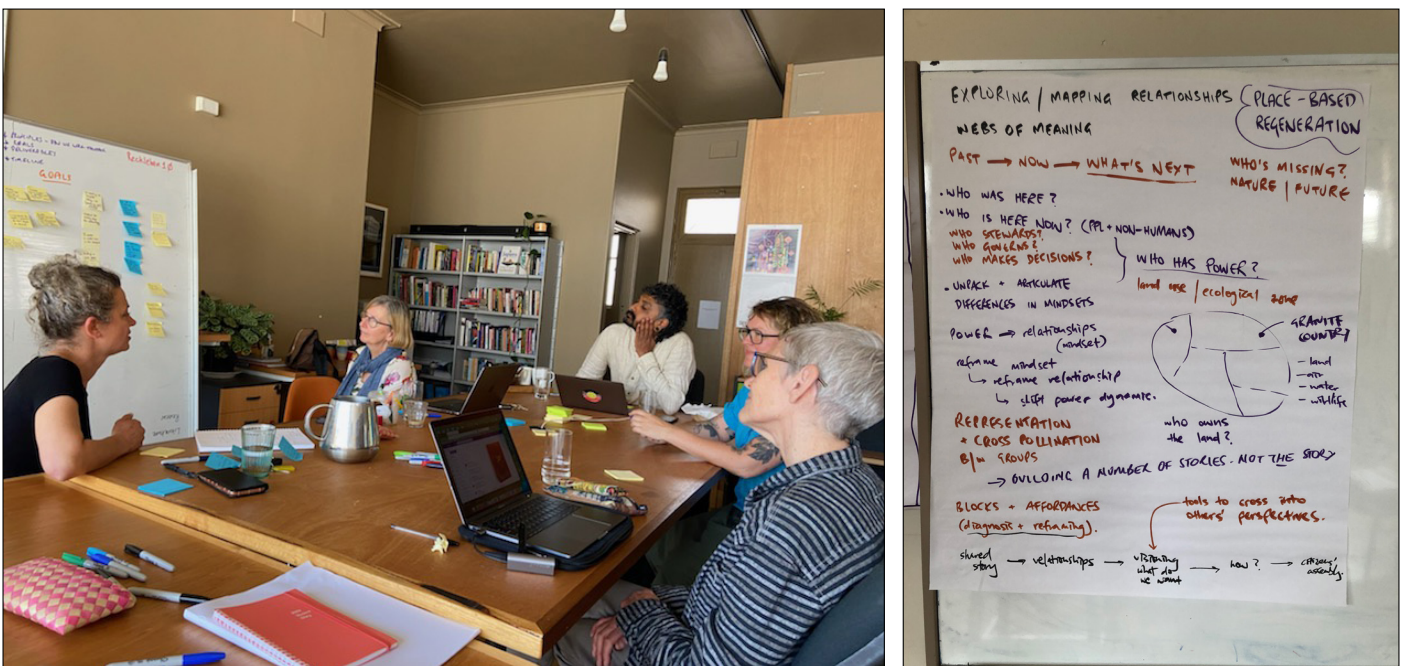 GOALS
EXPLORING / MAPPING RELATIONSHIPS
PLACE-BASED
REGENERATION
WEBS OF MEANING
PAST → NOW → WHAT'S NEXT
WHO'S MISSING?
NATURE / FUTURE
• WHO WAS HERE?
• WHO IS HERE NOW? (PPL + NON-HUMANS)
WHO STEWARDS?
WHO GOVERNS?
WHO MAKES DECISIONS?
WHO HAS POWER?
land use / ecological zone
• UNPACK + ARTICULATE
DIFFERENCES IN MINDSETS
GRANITE
COUNTRY
– land
– air
– water
– wildlife
POWER → relationships
(mindset)
reframe mindset
↳ reframe relationship
↳ shift power dynamic.
who owns
the land?
REPRESENTATION
+ CROSS POLLINATION
B/w GROUPS
→ BUILDING A NUMBER OF STORIES. NOT THE STORY
BLOCKS + AFFORDANCES
(diagnosis + reframing).
tools to cross into
others' perspectives.
shared
story → relationships → visioning
what do
we want → how? → citizens'
assembly.